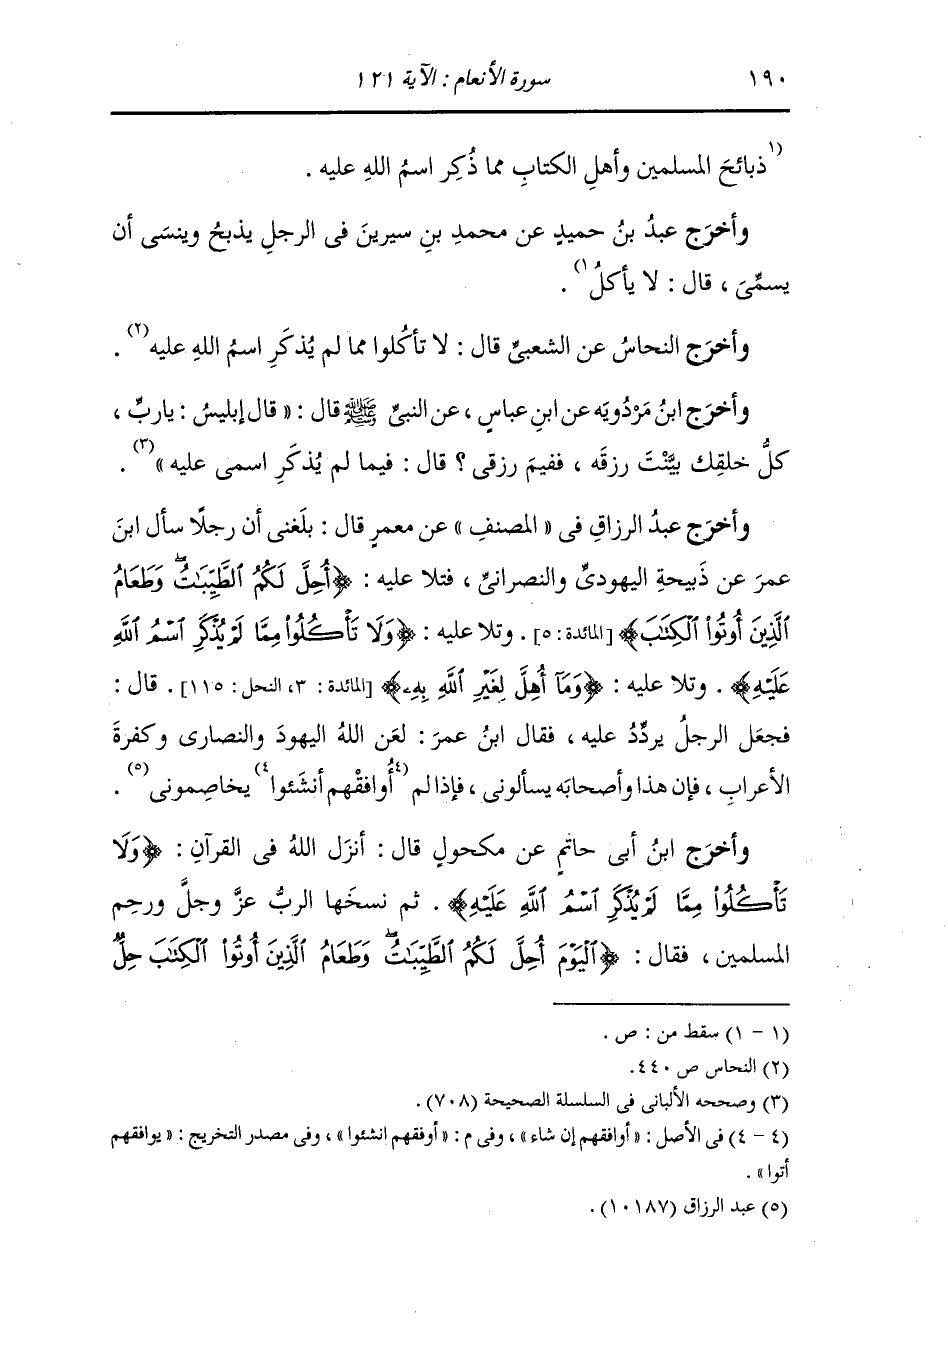 ١٩٠ سورة الأنعام : الآية ١٢١
(١ذبائحَ المسلمين وأهلِ الكتابِ مما ذُكِر اسمُ اللهِ عليه .
وأخرَج عبدُ بنُ حميدٍ عن محمدِ بنِ سيرينَ فى الرجلِ يذبحُ وينسَى أن
يسمِّىَ ، قال : لا يأكلُ١) .
وأخرَج النحاسُ عن الشعبىِّ قال : لا تأكُلوا مما لم يُذكَرِ اسمُ اللهِ عليه(٢) .
وأخرَج ابنُ مَرْدُويَه عن ابنِ عباسٍ ، عن النبىِّ ﷺ قال : « قال إبليسُ : ياربِّ ،
كلُّ خلقِك بيَّنْتَ رزقَه ، ففيمَ رزقى ؟ قال : فيما لم يُذكَرِ اسمى عليه »(٣) .
وأخرَج عبدُ الرزاقِ فى « المصنفِ » عن معمرٍ قال : بلَغنى أن رجلًا سأل ابنَ
عمرَ عن ذَبيحةِ اليهودىِّ والنصرانىِّ ، فتلا عليه : ﴿أُحِلَّ لَكُمُ ٱلطَّيِّبَـٰتُۖ وَطَعَامُ
ٱلَّذِينَ أُوتُوا۟ ٱلْكِتَـٰبَ﴾ [المائدة: ٥] . وتلا عليه : ﴿وَلَا تَأْكُلُوا۟ مِمَّا لَمْ يُذْكَرِ ٱسْمُ ٱللَّهِ
عَلَيْهِ﴾ . وتلا عليه : ﴿وَمَآ أُهِلَّ لِغَيْرِ ٱللَّهِ بِهِۦ﴾ [المائدة : ٣، النحل : ١١٥] . قال :
فجعَل الرجلُ يردِّدُ عليه ، فقال ابنُ عمرَ : لعَن اللهُ اليهودَ والنصارى وكفرةَ
الأعرابِ ، فإن هذا وأصحابَه يسألونى ، فإذا لم (٤أُوافقْهم أنشَئوا٤) يخاصِمونى(٥) .
وأخرَج ابنُ أبى حاتمٍ عن مكحولٍ قال : أنزَل اللهُ فى القرآنِ : ﴿وَلَا
تَأْكُلُوا۟ مِمَّا لَمْ يُذْكَرِ ٱسْمُ ٱللَّهِ عَلَيْهِ﴾ . ثم نسخَها الربُّ عزَّ وجلَّ ورحِم
المسلمين ، فقال : ﴿ٱلْيَوْمَ أُحِلَّ لَكُمُ ٱلطَّيِّبَـٰتُۖ وَطَعَامُ ٱلَّذِينَ أُوتُوا۟ ٱلْكِتَـٰبَ حِلٌّ
(١ - ١) سقط من : ص .
(٢) النحاس ص ٤٤٠.
(٣) وصححه الألبانى فى السلسلة الصحيحة (٧٠٨) .
(٤ - ٤) فى الأصل : « أوافقهم إن شاء » ، وفى م : « أوفقهم انشئوا » ، وفى مصدر التخريج : « يوافقهم
أتوا » .
(٥) عبد الرزاق (١٠١٨٧) .